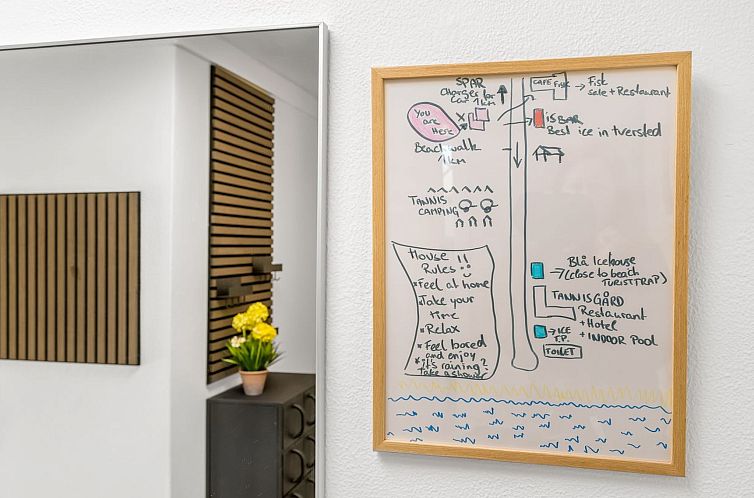 SPAR
Charger for
Car 1km
CAFE Fisk
Fisk
sale + Restaurant
You
are
Here
X
is BAR
Best ice in tversted
Beachwalk
1km
TANNIS
CAMPING
House
Rules !!
*Feel at home
*Take your
time
*Relax
*Feel bored
and enjoy
*it's raining?
Take a shower
Blå Icehouse
(close to beach
TURISTTRAP)
TANNISGÅRD
Restaurant
+ Hotel
+ INDOOR Pool
ICE
T.P.
TOILET